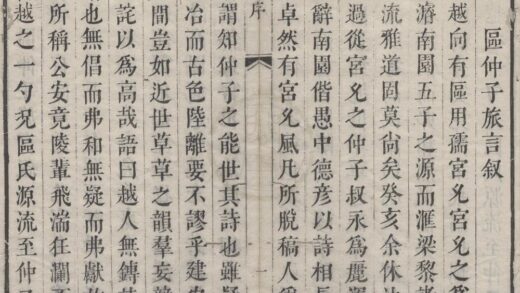 區仲子旅言叙
越向有區用孺宮允宮允之
濬南園五子之源而滙梁黎諸
流雅道固莫尚矣癸亥余休沐
過從宮允之仲子叔永爲麗
辭南園偕愚中德彦以詩相長
卓然有宮允風凡所脱稿人
序
謂知仲子之能世其詩也雖
冶而古色陸離要不謬乎建安
間豈如近世草草之韻羣妄
詫以爲高哉語曰越人無鎛
也無倡而弗和無疑而弗獻
所稱公安竟陵輩飛湍狂瀾
越之一勺况區氏源流至仲子